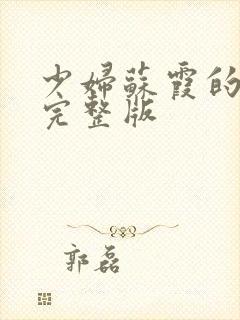 少婦蘇霞的
完整版
郭磊